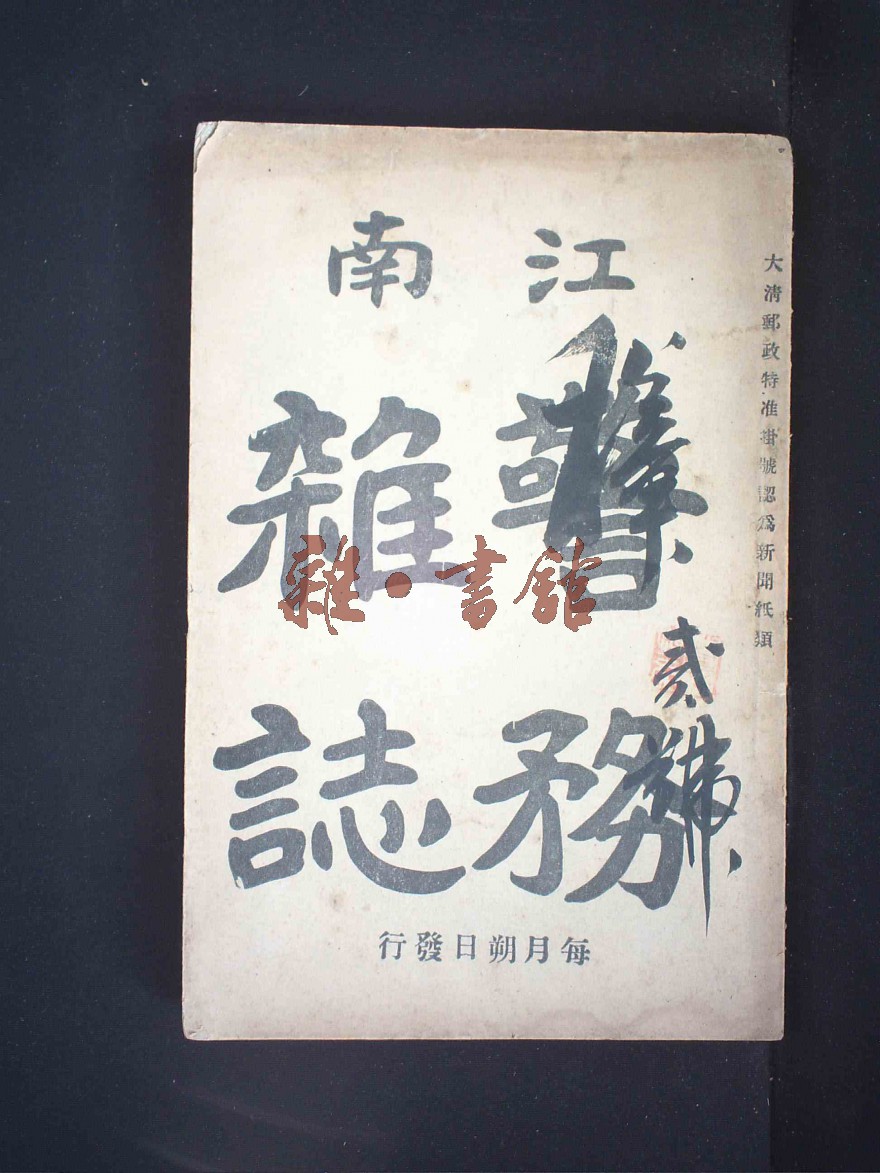 大清郵政特准掛號認爲新聞紙類
江南
警務
雜誌
貳號
每月朔日發行
雜·書館